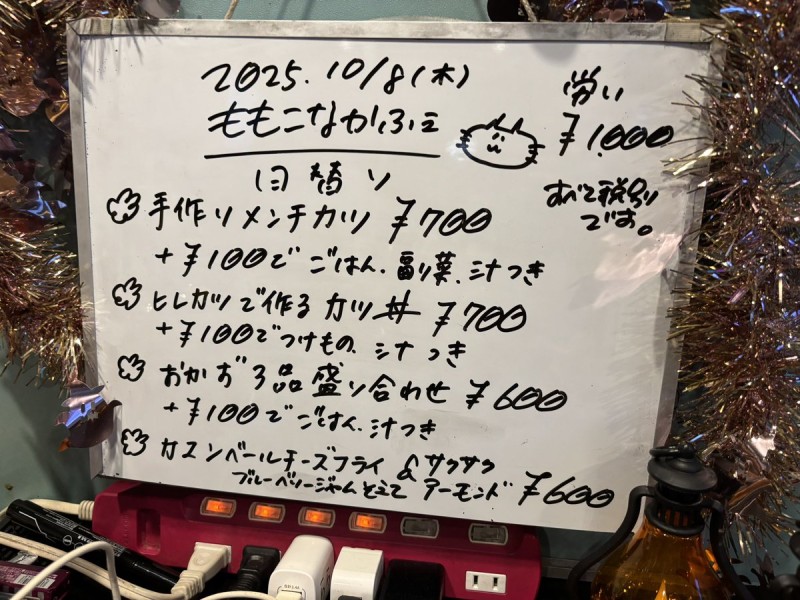 2025.10/8(木)
ももこなかふぇ
労い
¥1,000
すべて税別り
です。
日替り
手作りメンチカツ ¥700
+¥100で ごはん、副菜、汁つき
ヒレカツで作る カツ丼 ¥700
+¥100でつけもの、汁つき
おかず3品盛り合わせ ¥600
+¥100でごはん、汁つき
カマンベールチーズフライ &サクサク
ブルーベリージャムそえて アーモンド ¥600